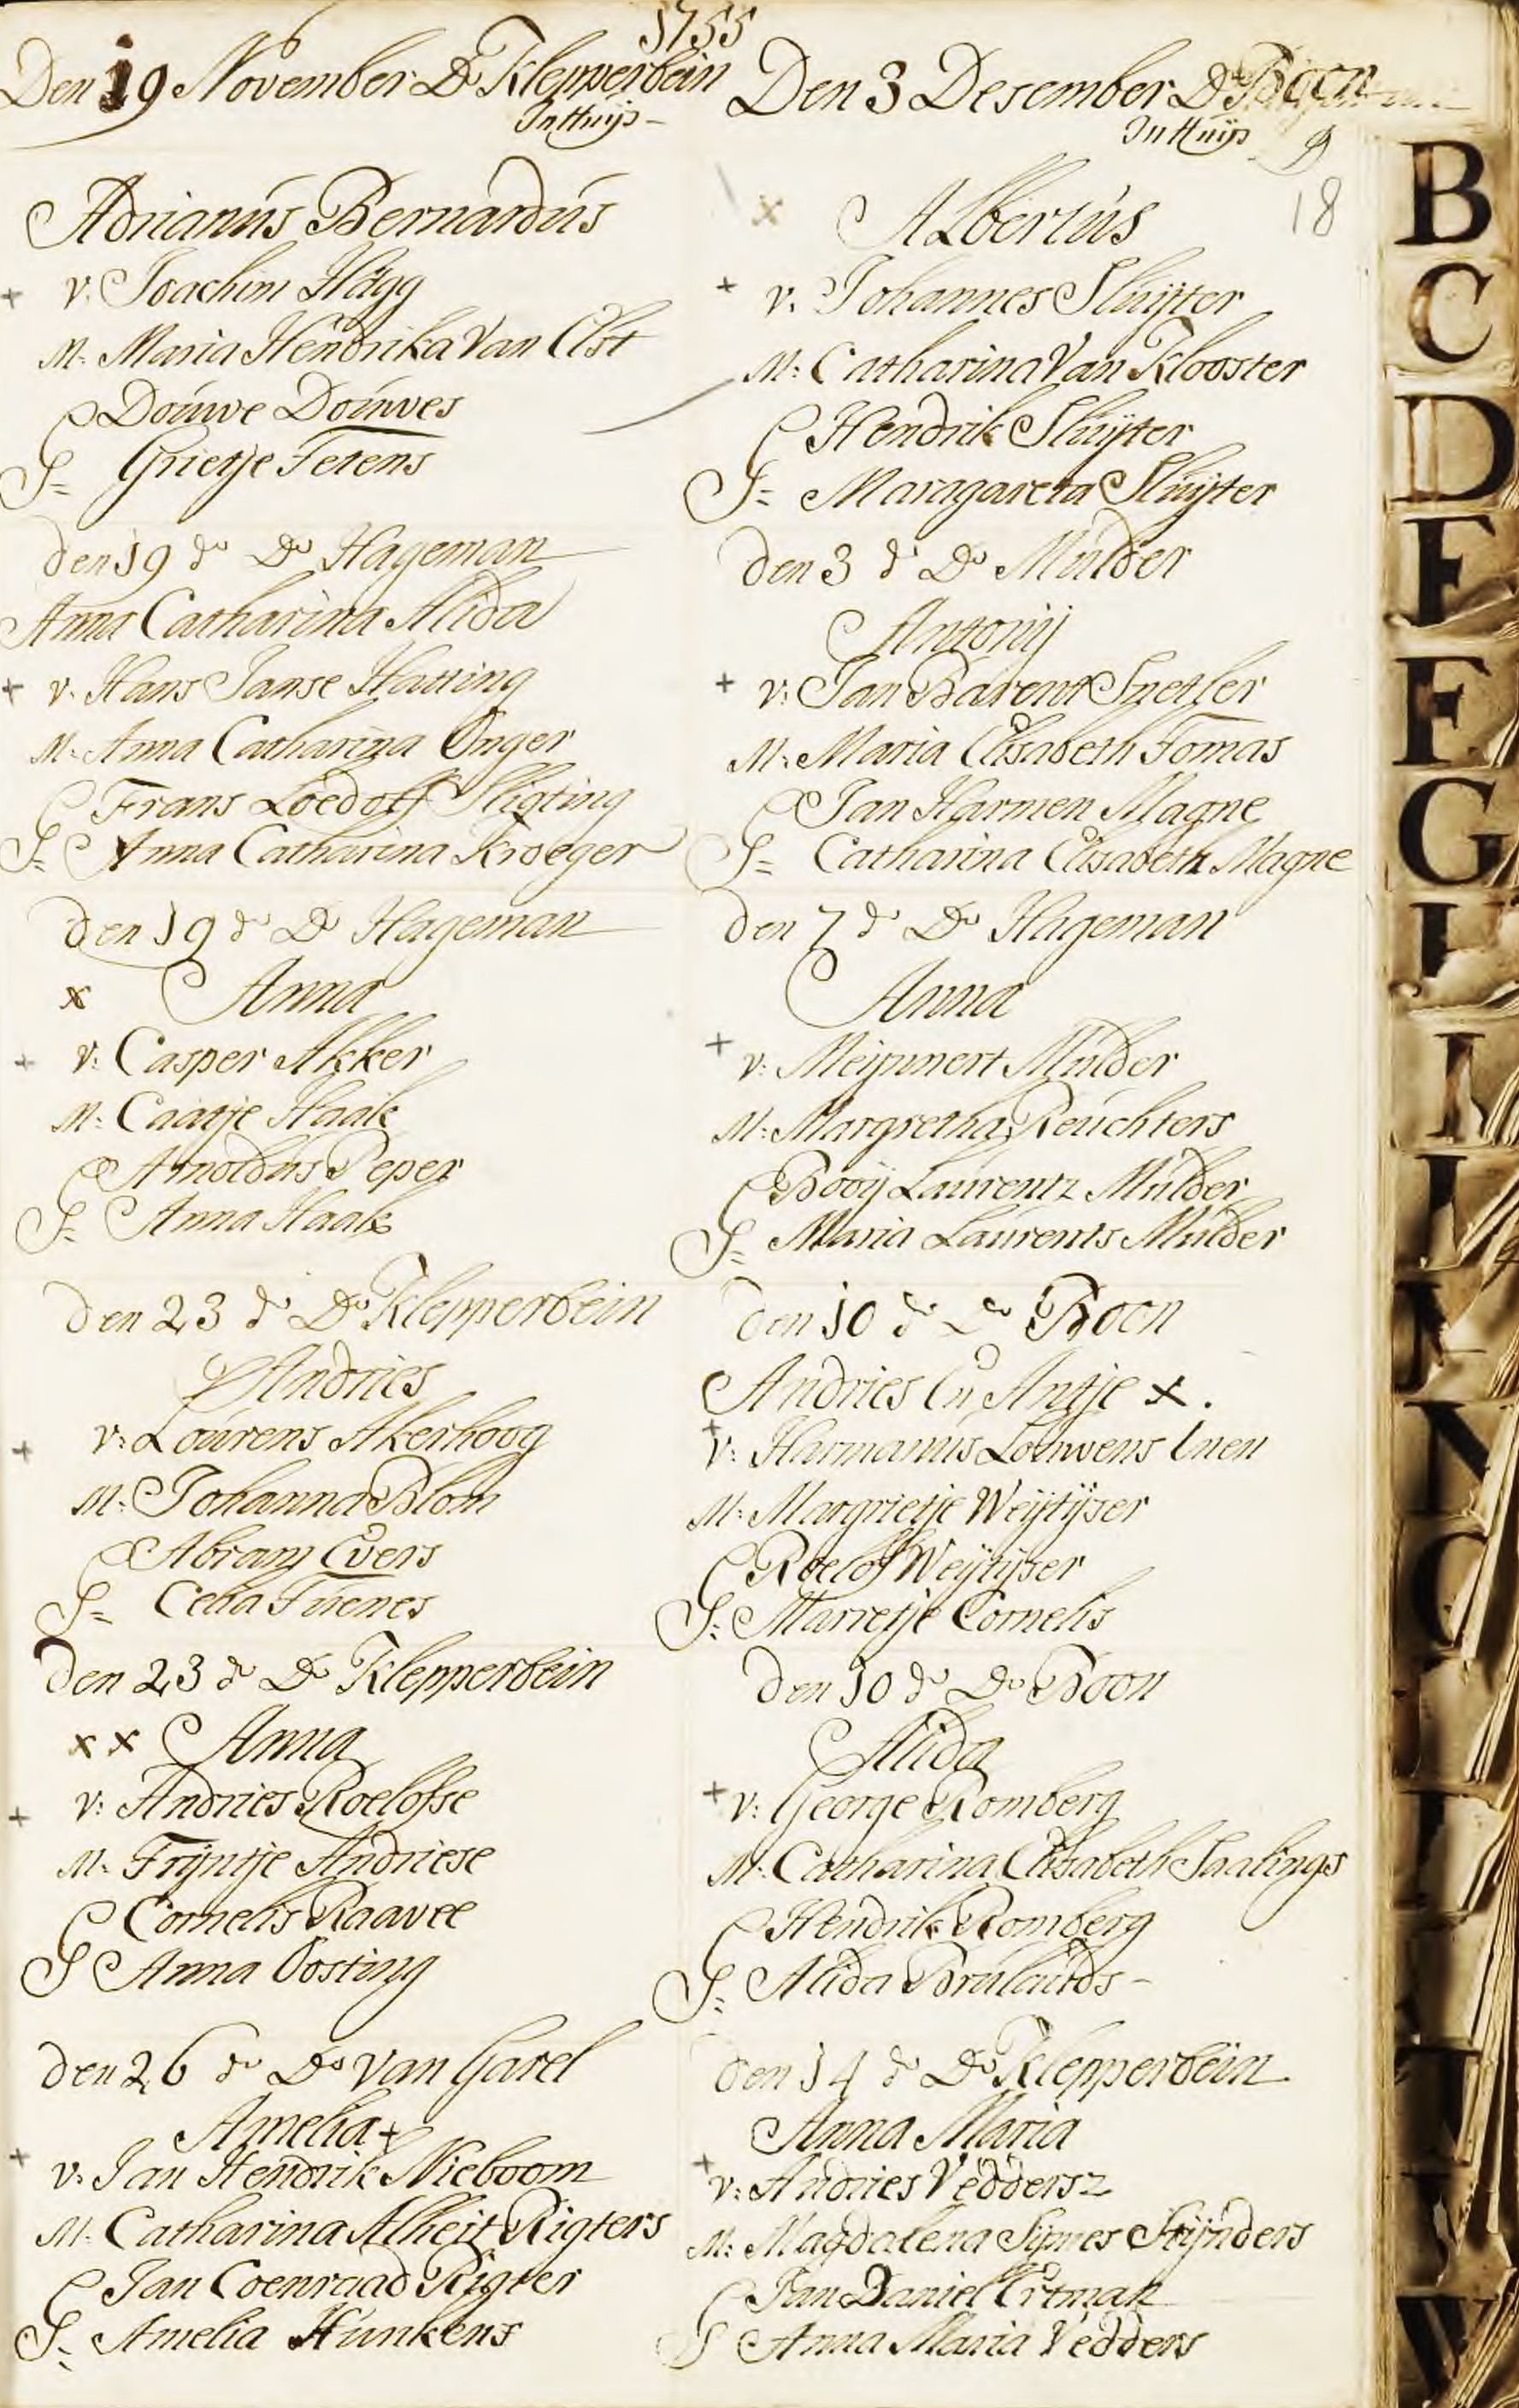 1755
Den 19 November Do Klepperbein
In Huijs
Adrianus Bernardus
v. Joachim Hägg
M. Maria Hendrika Van Elst
Douwe Douwes
G= Grietje Fetens
den 19 do Do Hageman
Anna Catharina Alida
v. Hans Janse Hatting
M. Anna Catharina Onger
Frans Loedolf Sligting
G= Anna Catharina Kroeger
den 19 do Do Hageman
x Anna
v: Casper Akker
M: Caatje Haak
Arnoldus Peper
G= Anna Haak
den 23 do Do Klepperbein
Andries
v: Lourens Akerhoog
M: Johanna Blom
Abram Evers
G= Celia
den 23 do Do Klepperbein
x x Anna
v: Andries Roelofse
M: Trijntje Andriese
Cornelis Raavee
G Anna Oosting
den 26 do Ds van Garel
Amelia +
v: Jan Hendrik Nieboom
M. Catharina Alheit Rigters
Jan Coenraad Rigter
G= Amelia Hunkens
Den 3 Desember Do Boon
In Huijs
18
x Albertus
v. Johannes Sluijter
M: Catharina Van Klooster
Hendrik Sluijter
G= Maragareta Sluijter
den 3 do Do Mulder
Antonij
v: Jan Barent Snetler
M: Maria Elisabeth Tomas
Jan Harmen Magne
G= Catharina Elisabeth Magne
den 7 do Do Hageman
Anna
v: Meijnnert Mulder
M: Margretha Reuchters
Booij Laurentz Mulder
G= Maria Laurents Mulder
den 10 do Do Boon
Andries En Antje x .
v: Harmanus Louwens
M: Margrietje Weijtijser
Roelof Weijtijser
G: Marretje Cornelis
den 10 do Do Boon
Alida
v: George Romberg
M: Catharina Elisabeth Saalings
Hendrik Romberg
G= Alida
den 14 do Do Klepperbein
Anna Maria
v: Andries Veddersz
M: Magdalena Sijmes Stijnders
Jan Daniel Ertman
G Anna Maria Vedders
B
C
D
E
F
G
H
I